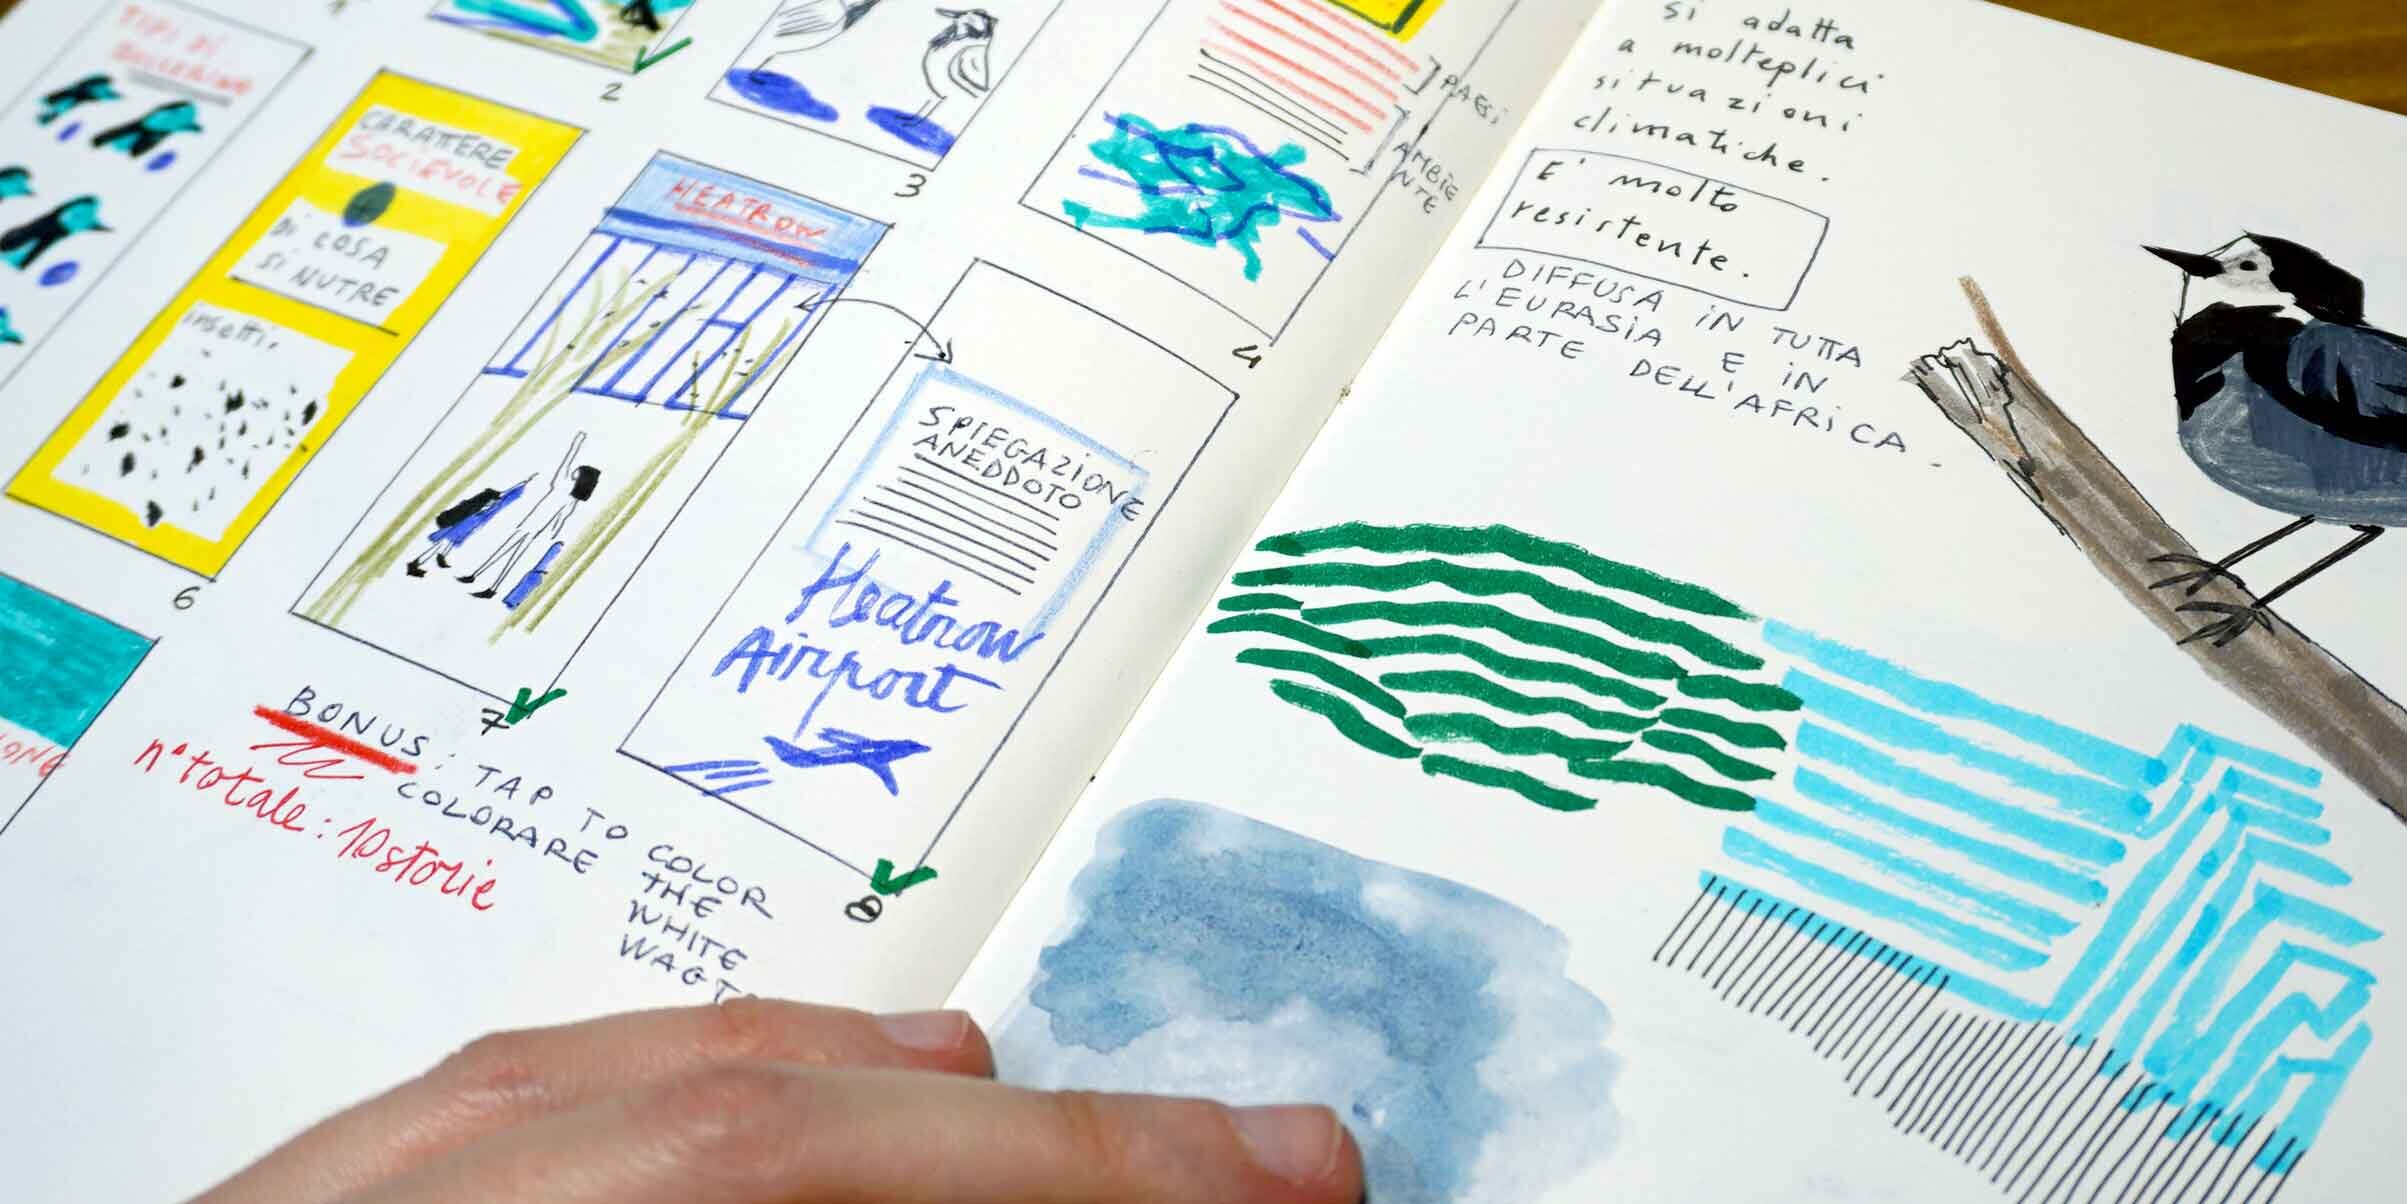 1
2
3
4
TIPI DI
BALLERINA
CARATTERE
SOCIEVOLE
DI COSA
SI NUTRE
insetti.
6
HEATROW
7
PAESI
AMBIE
NTE
SPIEGAZIONE
ANEDDOTO
Heatrow
Airport
8
BONUS: TAP TO COLOR
COLORARE THE
WHITE
WAGT
n° totale: 10 storie
si adatta
a molteplici
situazioni
climatiche.
E' molto
resistente.
DIFFUSA IN TUTTA
L'EURASIA E IN
PARTE DELL'AFRICA.